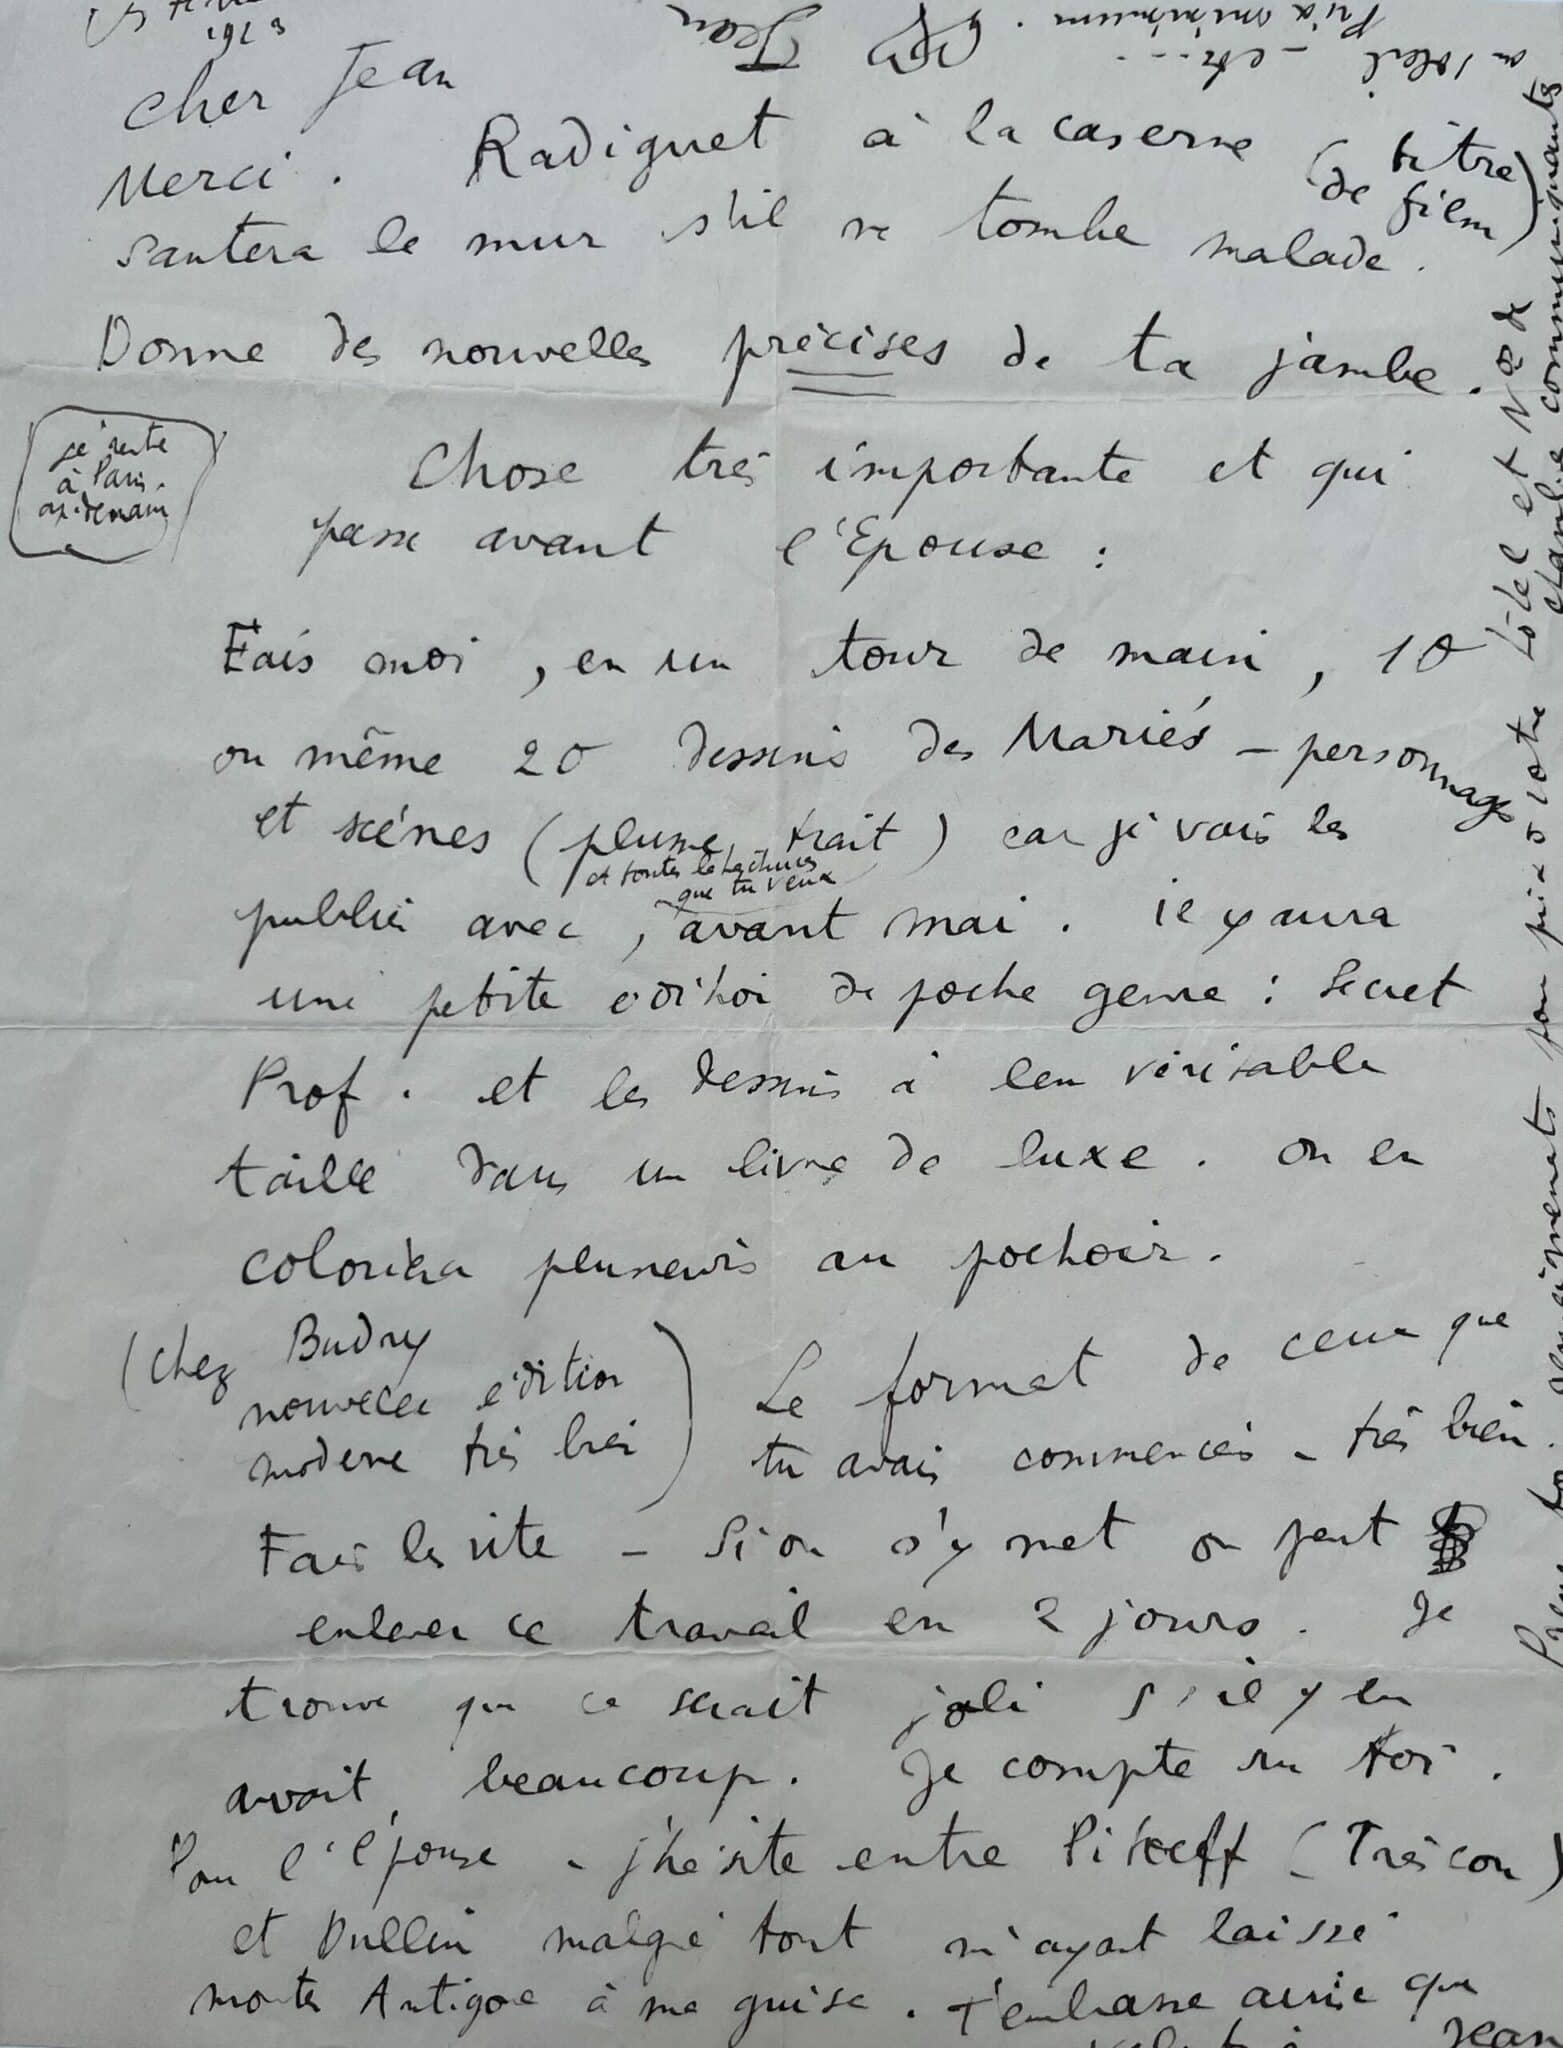 1923
Cher Jean
Merci. Radiguet à la caserne (titre
de film)
sautera le mur s'il ne tombe malade.
Donne des nouvelles précises de ta jambe.
je rentre
à Paris
ap. demain
Chose très importante et qui
passe avant l'Epouse :
Fais moi, en un tour de main, 10
ou même 20 dessins des Mariés – personnages
et scènes (plume, trait) car je vais les
et toutes les hachures
que tu veux
publier avec, avant mai. il y aura
une petite édition de poche genre : Secret
Prof. et les dessins à leur véritable
taille dans un livre de luxe. On en
coloriera plusieurs au pochoir.
(chez Budry
nouvelle édition
moderne très bien)
Le format de ceux que
tu avais commencés – très bien.
Fais les vite – Si on s'y met on peut
enlever ce travail en 2 jours. Je
trouve que ce serait joli s'il y en
avait beaucoup. Je compte sur toi.
Pour l'épouse – j'hésite entre Pitoeff (Très con)
et Dullin malgré tout m'ayant laissé
monter Antigone à ma guise. T'embrasse ainsi que
Jean
pour prix de votre hôtel et No de
chambre communiquants
au soleil – etc...
Prix minimum.
Jean